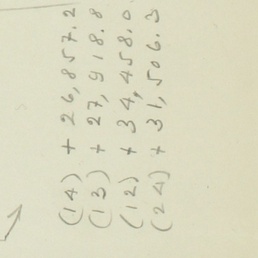 (14) + 26,857.2
(13) + 27,918.8
(12) + 34,458.0
(24) + 31,506.3